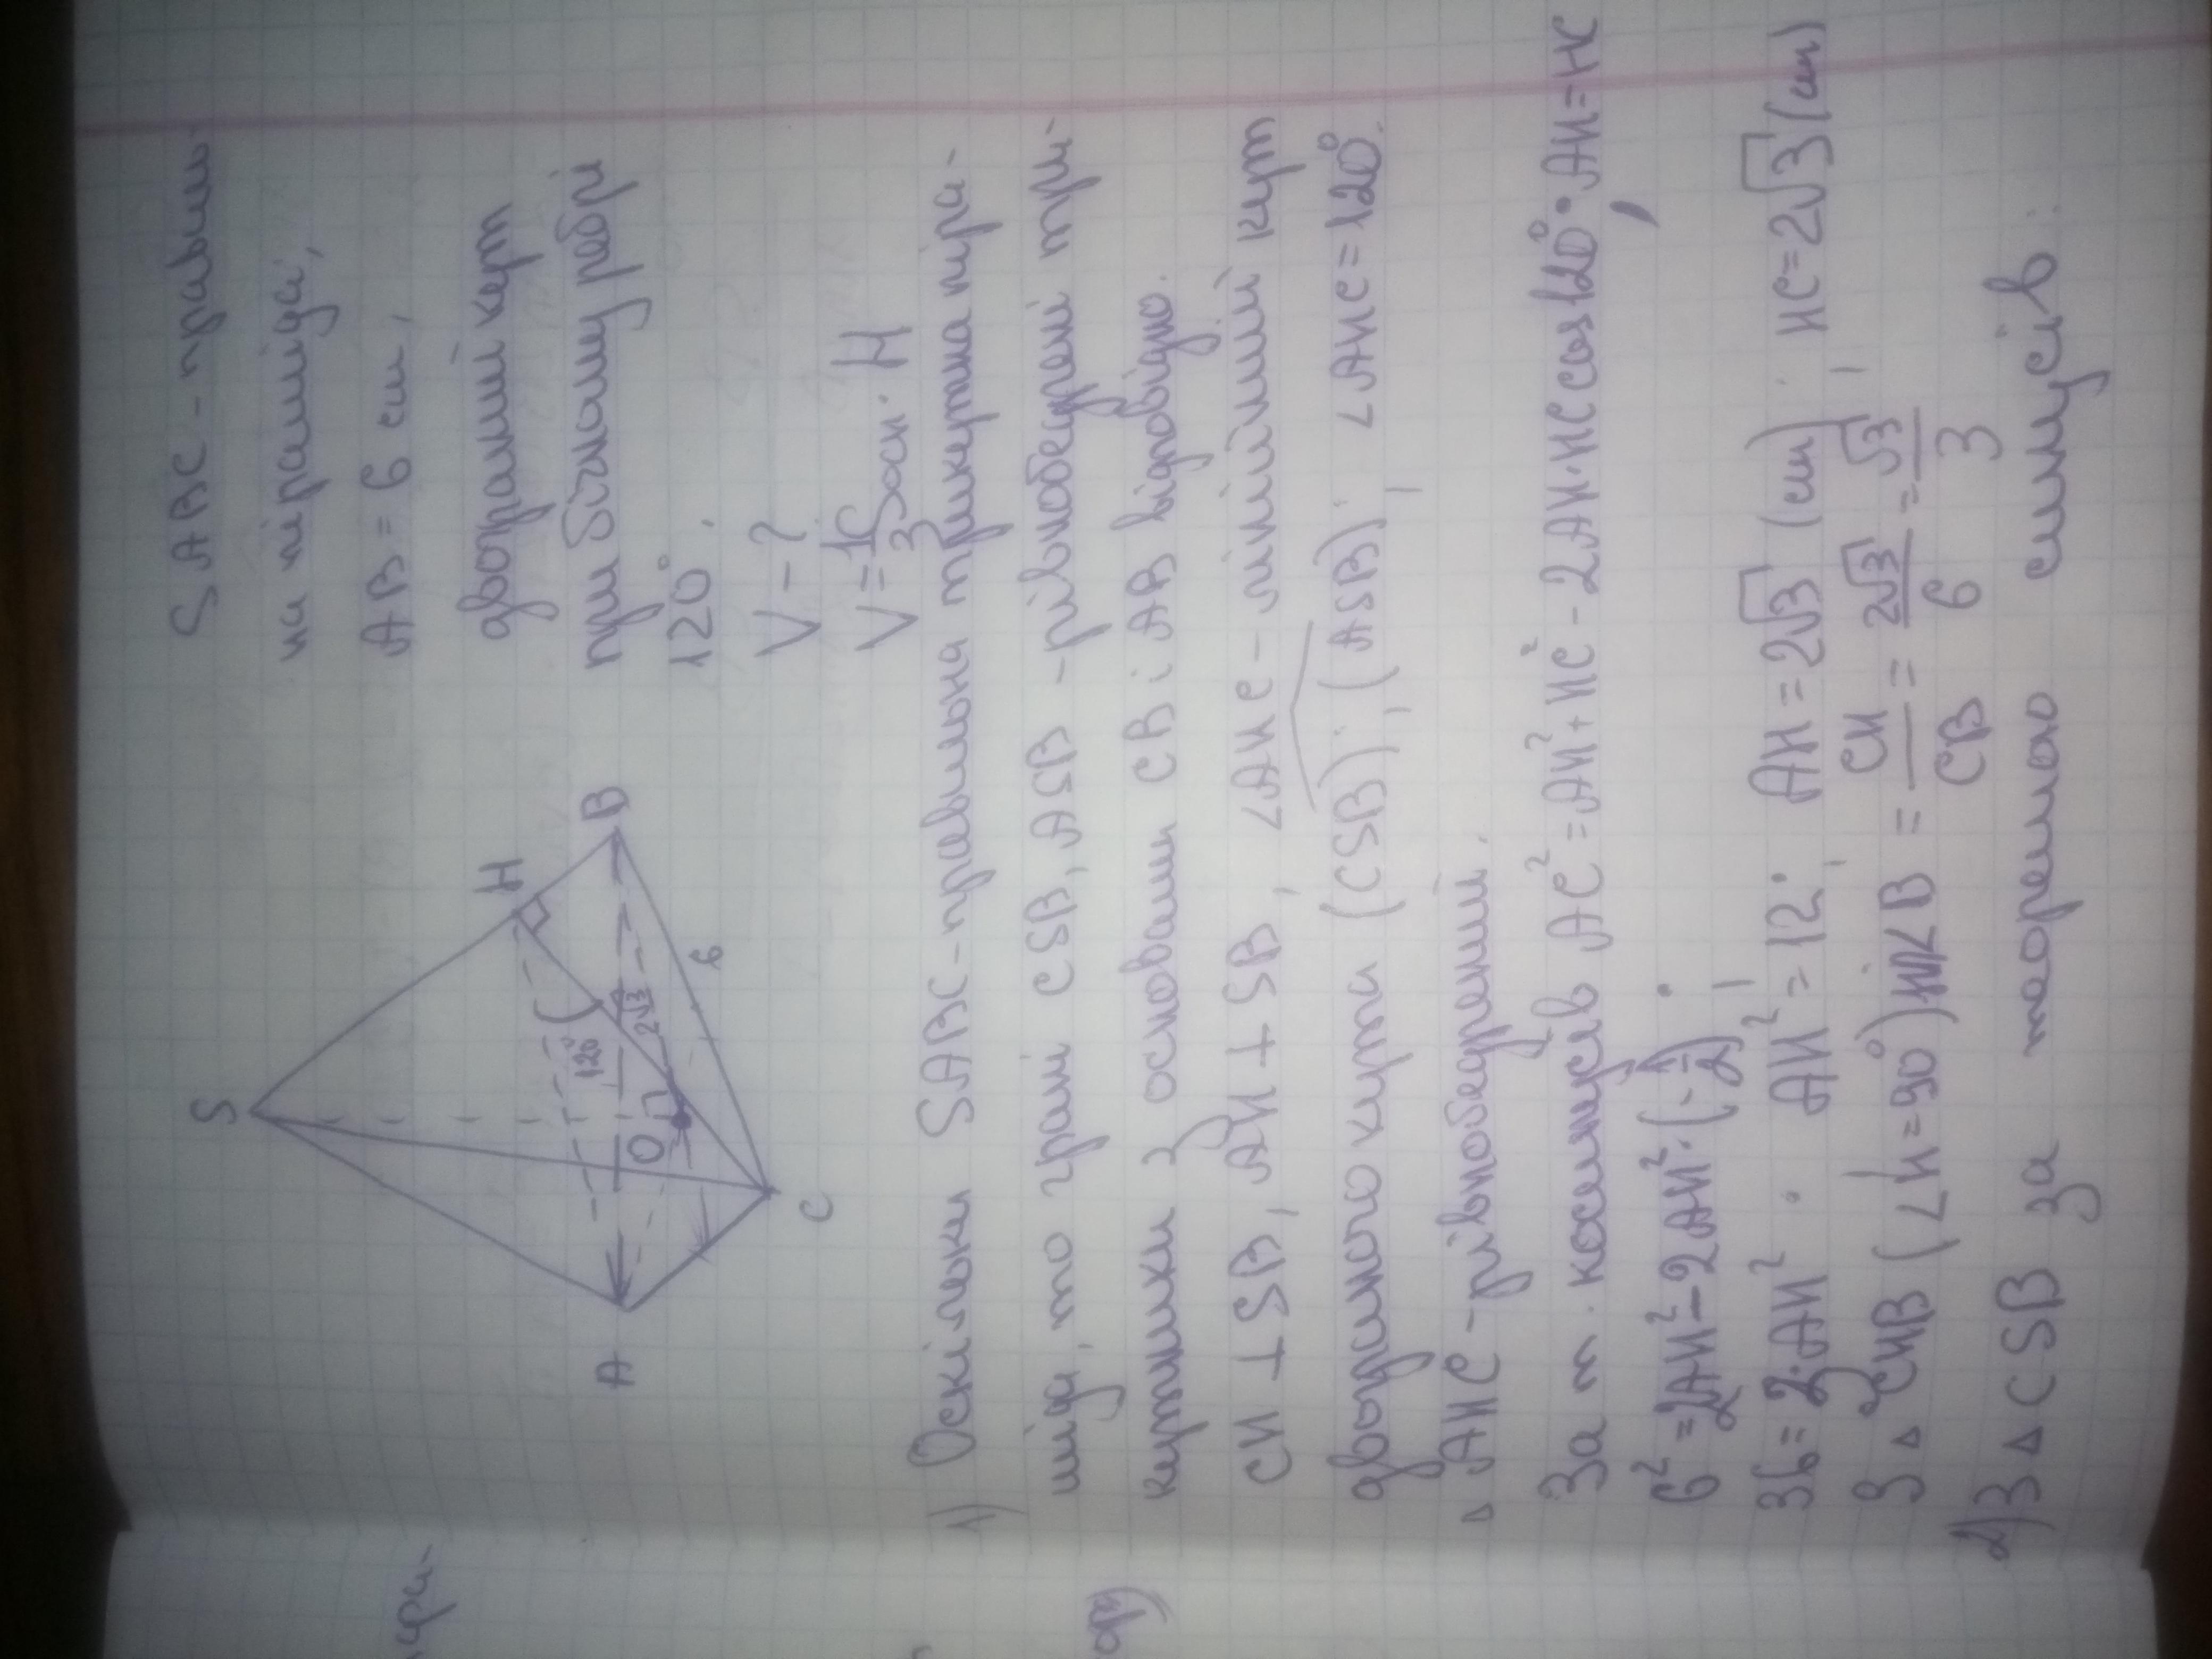 SABC - правиль-
на піраміда,
AB = 6 см,
двогранний кут
при бічному ребрі
120°.
V - ?
V = 1/3 Sосн · H
S
H
B
A
C
O
120°
2√3
6
1) Оскільки SABC - правильна трикутна піра-
міда, то грані CSB, ASB - рівнобедрені три-
кутники з основами CB і AB відповідно.
CH ⊥ SB, AH ⊥ SB, ∠AHC - лінійний кут
двогранного кута (CSB); (ASB); ∠AHC = 120°.
△ AHC - рівнобедрений.
За т. косинусів AC² = AH² + HC² - 2AH·HC cos120°. AH = HC
6² = 2AH² - 2AH²·(-1/2);
36 = 3·AH²; AH² = 12; AH = 2√3 (см); HC = 2√3 (см)
З △ CHB (∠H = 90°) sin∠B = CH/CB = 2√3/6 = √3/3
2) З △ CSB за теоремою синусів: